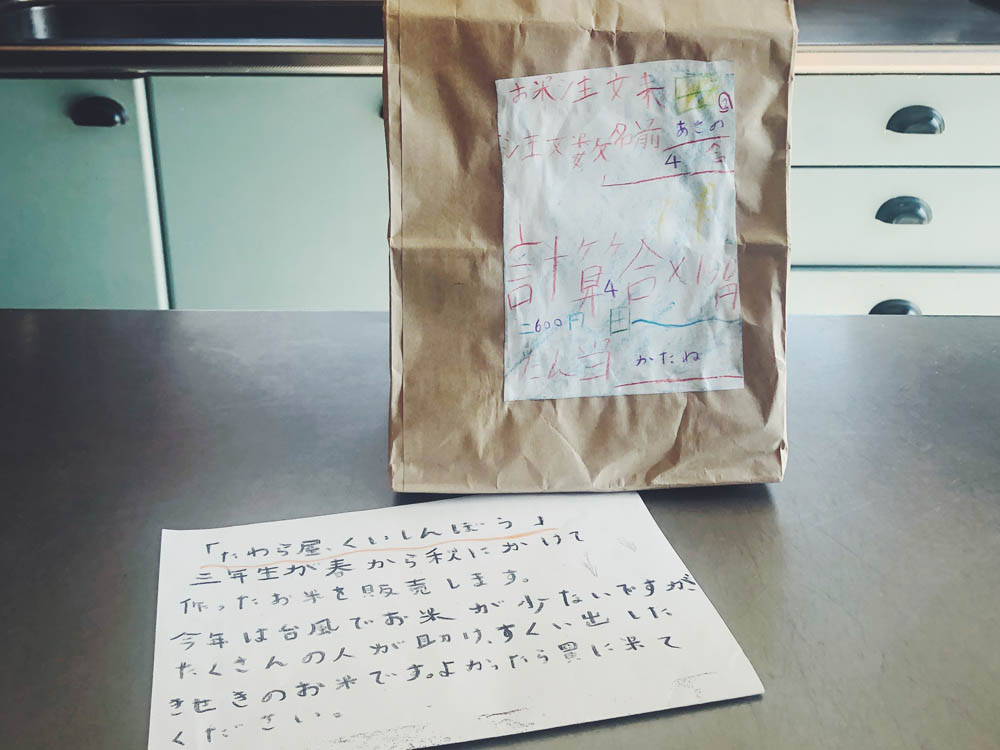 お米注文票
注文数名前 あさの
4 合
計算 4 合×1
=600円
たん当 かたね
「たわら屋、くいしんぼう」
三年生が春から秋にかけて
作ったお米を販売します。
今年は台風でお米が少ないですが、
たくさんの人が助け、すくい出した
きせきのお米です。よかったら買に米て
ください。